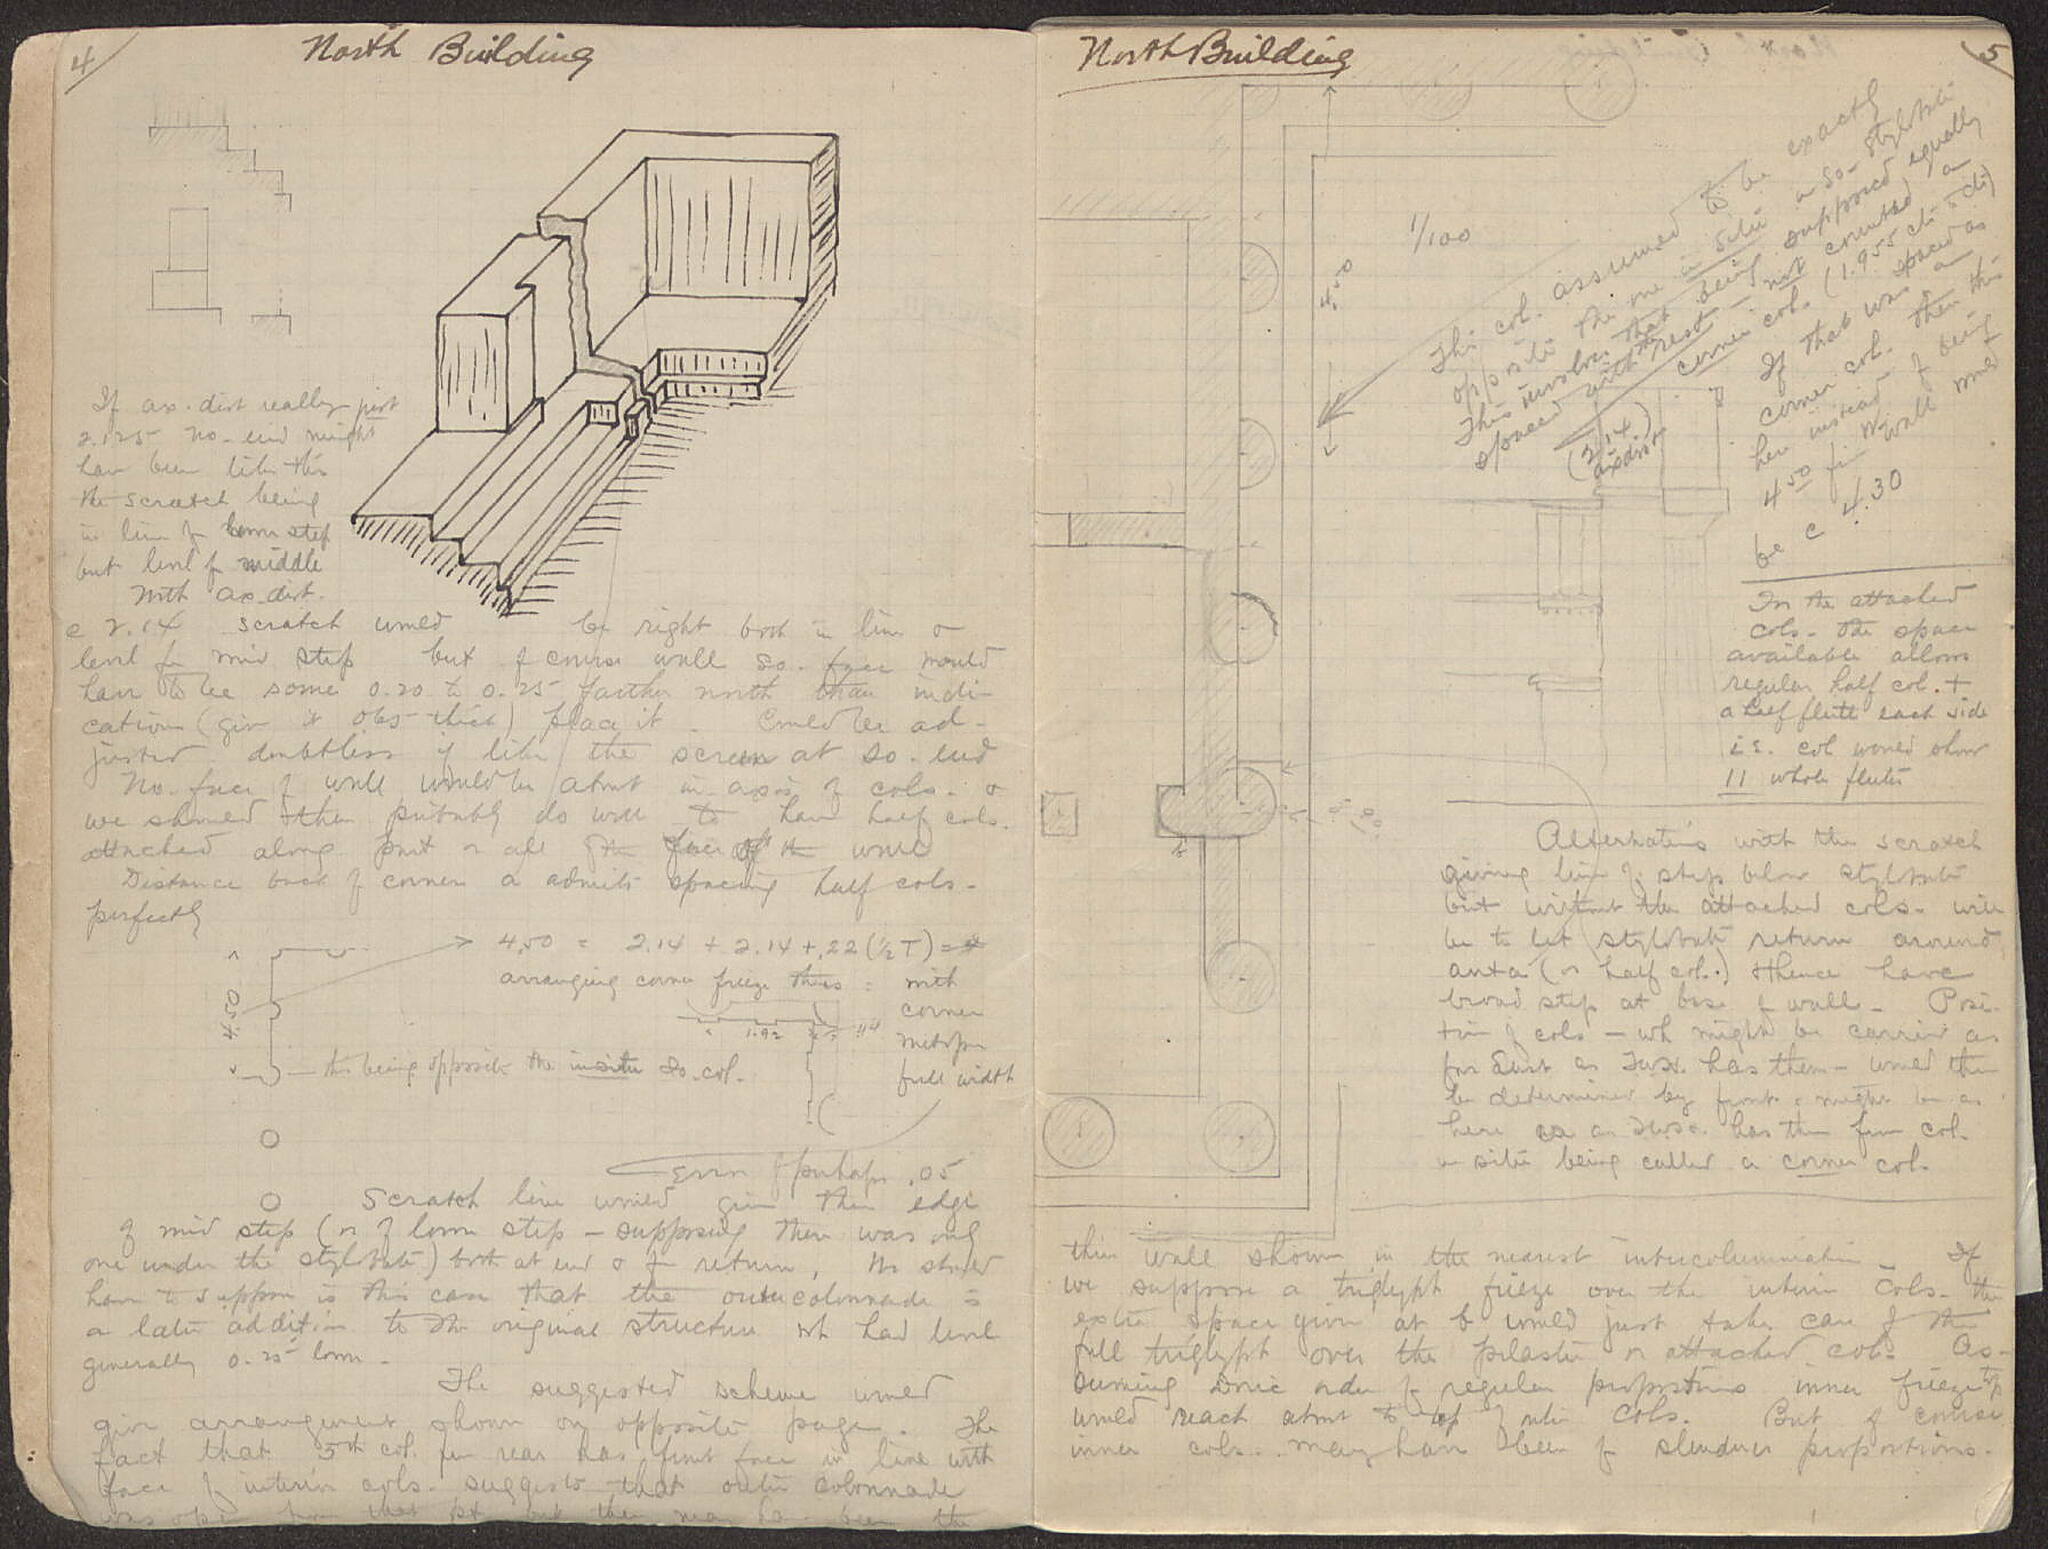 4
North Building
If ax. dist really just
2.125 no. end might
have been like this
the scratch being
in line of lower step
but level for middle
With ax. dist.
c 2.14 scratch would be right both in line &
level for mid step but of course wall so. face would
have to be some 0.20 to 0.25 farther north than indi-
cation (give it obs thick) place it. Could be ad-
justed doubtless if like the screen at so. end
No. face of wall would be about in axis of cols. &
we should then probably do well to have half cols.
attached along part or all of the face of the wall
Distance back of corner a admits spacing half cols.
perfectly
4.50 = 2.14 + 2.14 + .22 (½ T) =
arranging corner frieze thus = with
corner
metope
full width
1.92
4.50
this being opposite the in situ So. col.
Error of perhaps .05
Scratch line would give then edge
of mid step (or of lower step – supposing there was only
one under the stylobate) both at end & for return. We should
have to suppose in this case that the outer colonnade is
a later addition to the original structure wh had level
generally 0.25 lower.
The suggested scheme would
give arrangement shown on opposite page. The
fact that 5th col. from rear has front face in line with
face of interior cols. suggests that outer colonnade
was open from that pt but there may have been the
North Building
5
1/100
4.50
This col. assumed to be exactly
opposite the one in situ in So. stylobate
This involves that being supposed equally
spaced with the rest – not counted a
corner col. (1.955 cti - cti)
(2.14)
axdist
If that was a
corner col. spaced as
then this
here instead of being
4.50 fr N. wall would
be c 4.30
In the attached
cols. the space
available allows
regular half col. +
a half flute each side
i.e. col would show
11 whole flutes
b
Alternative with the scratch
giving line of steps below stylobate
but without the attached cols. will
be to let stylobate return around
anta (or half col.) & thence have
broad step at base of wall. Posi-
tion of cols – wh might be carried as
far East as has them – would then
be determined by front & might be as
here or as has them from col.
in situ being called a corner col.
thin wall shown in the nearest intercolumniation. If
we suppose a triglyph frieze over the interior cols. the
extra space given at b would just take care of the
full triglyph over the pilaster or attached col. As-
suming Doric order of regular proportions inner frieze top
would reach about to top of outer cols. But of course
inner cols. may have been of slenderer proportions.